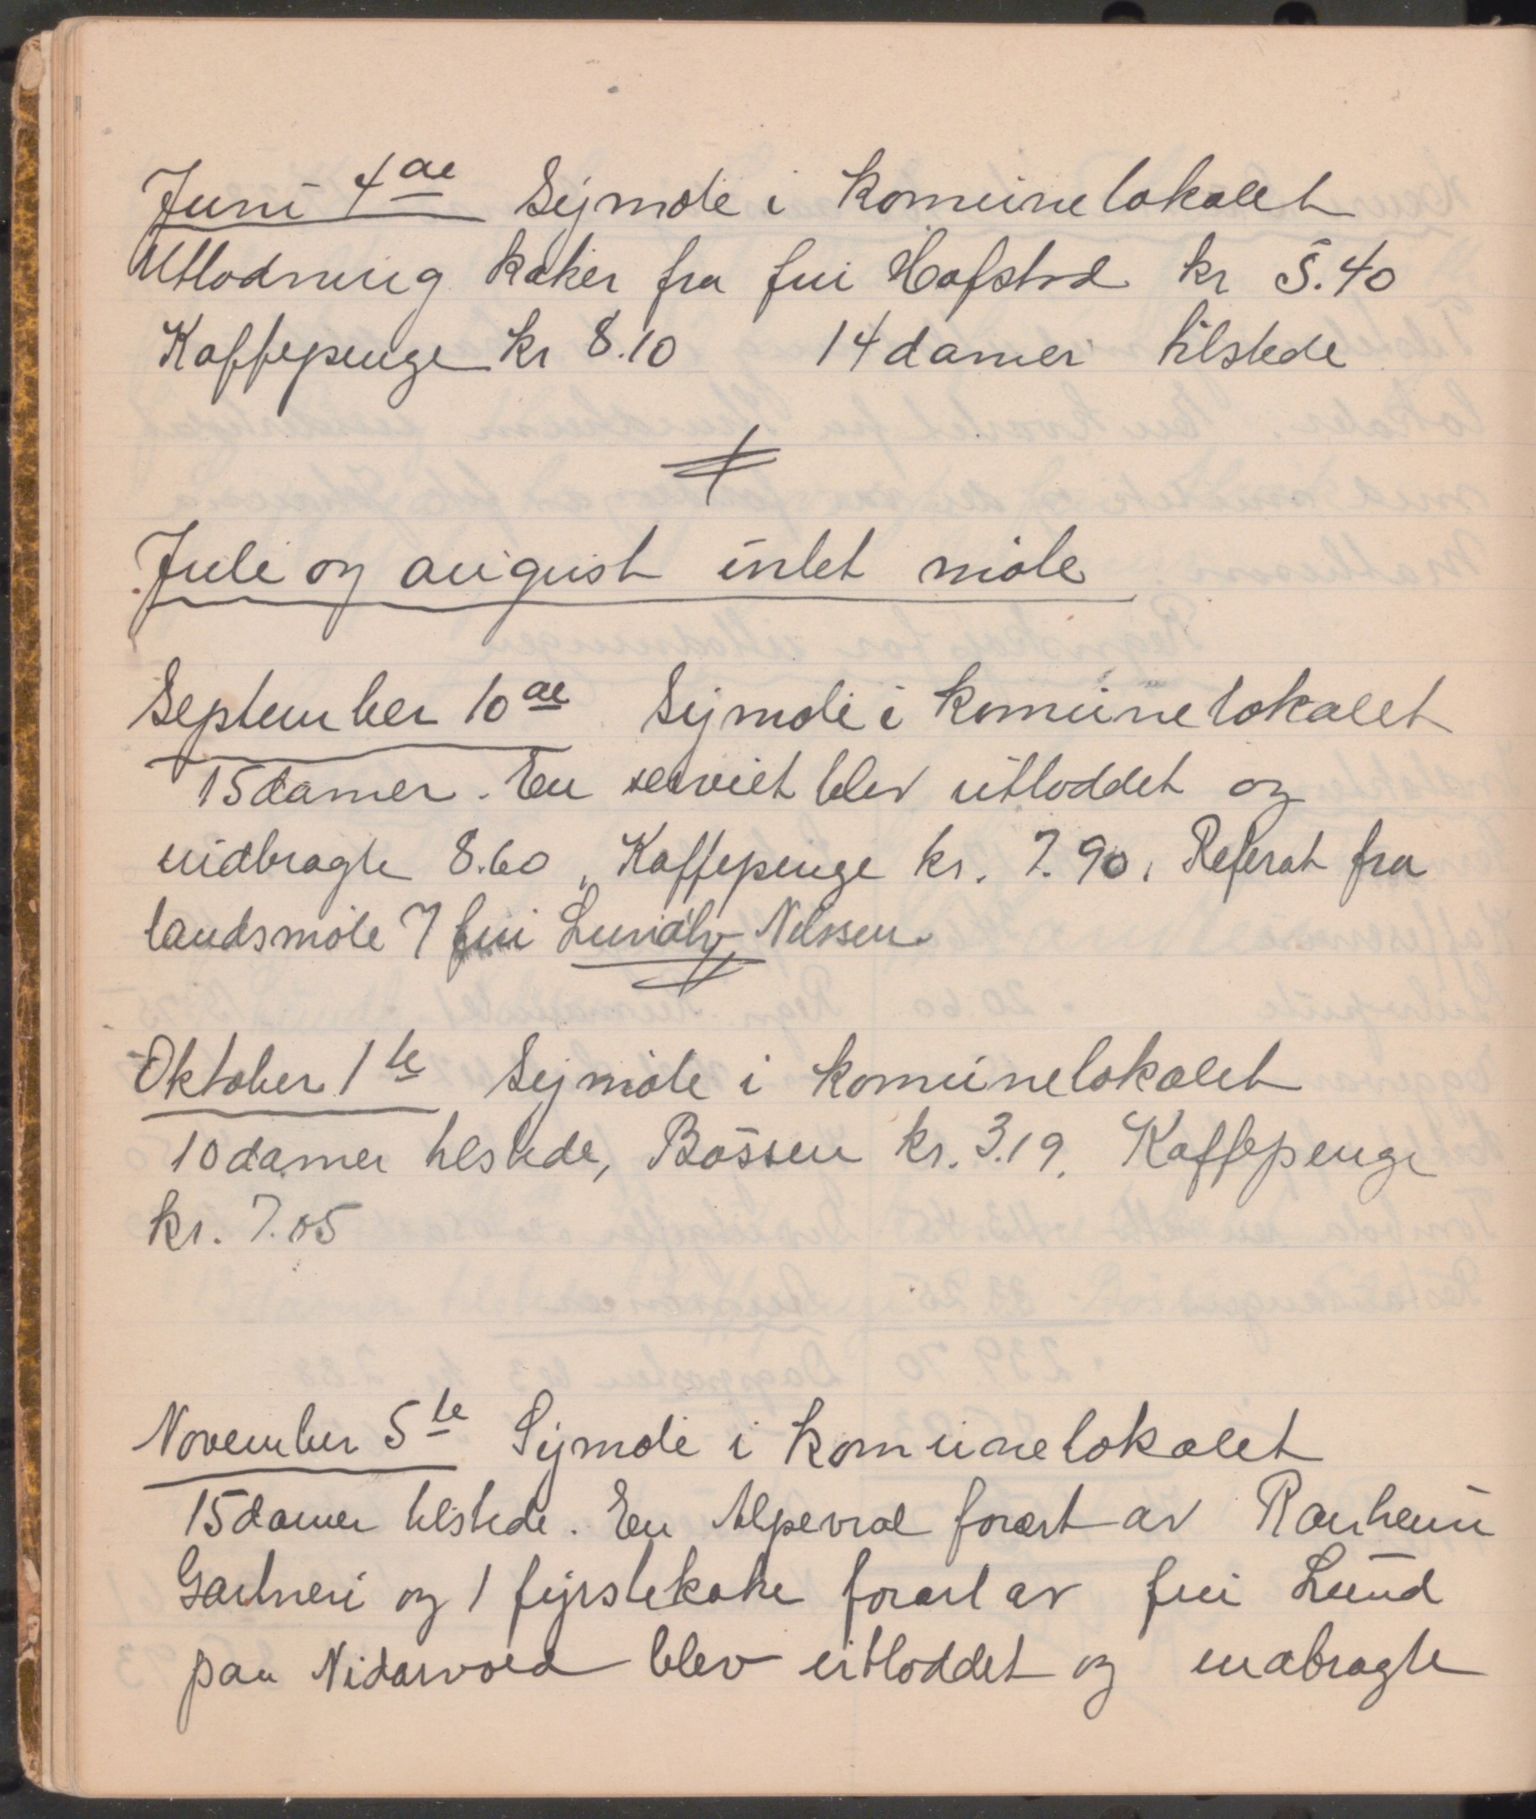 Juni 4de Symøte i komunelokalet
Utlodning kaker fra fru Hofstad kr 5.40
Kaffepenge kr 8.10 14 damer tilstede
Juli og august intet møte
September 10de Symøte i komunelokalet
15 damer. En serviet blev utloddet og
indbragte 8.60, Kaffepenge kr. 7.90, Referat fra
landsmøte 7 fru Nilssen.
Oktober 1te Symøte i komunelokalet
10 damer tilstede, Bøssen kr. 3.19. Kaffepenge
kr. 7.05
November 5te Symøte i komunelokalet
15 damer tilstede. En Alpeviol forært av Ranheim
Gartneri og 1 fyrstekake forært av fru Lund
paa Nidarvold blev utloddet og indbragte